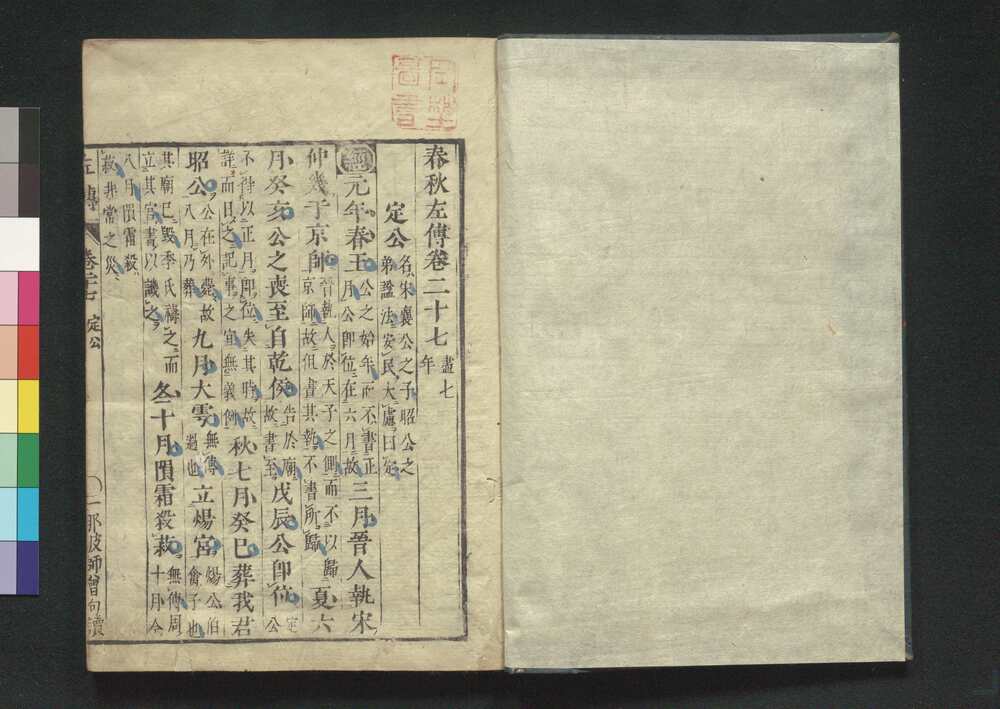 春秋左傳卷二十七 盡七年
定公 名宋襄公之子昭公之弟諡法安民大慮曰定
經元年春王 公之始年而不書正月公即位在六月故 三月晉人執宋
仲幾于京師 晉執人於天子之側而不以歸京師故但書其執不書所歸 夏六
月癸亥公之喪至自乾侯 告於廟故書至 戊辰公即位 定公
不待以正月即位失其時故詳而日之記事之宜無義例 秋七月癸巳葬我君
昭公 公在外薨故八月乃葬 九月大雩 無傳過也 立煬宮 煬公伯禽子也
其廟已毀季氏禱之而立其宮書以譏之 冬十月隕霜殺菽 無傳周十月今
八月隕霜殺菽非常之災
左傳 卷二十七 定公 一 那波師曾句讀